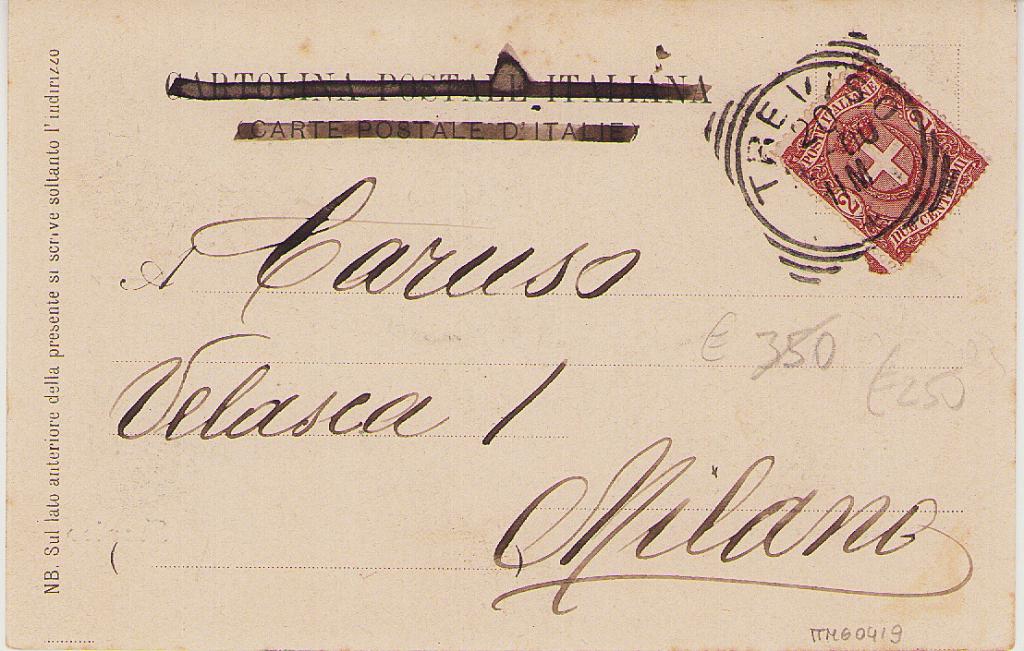 CARTOLINA POSTALE ITALIANA
CARTE POSTALE D'ITALIE
TREVISO
00
POSTE ITALIANE
2
2
DUE CENTESIMI
A Caruso
Velasca 1
Milano
€ 350
€ 250
( )
NB. Sul lato anteriore della presente si scrive soltanto l'indirizzo
ITM60419